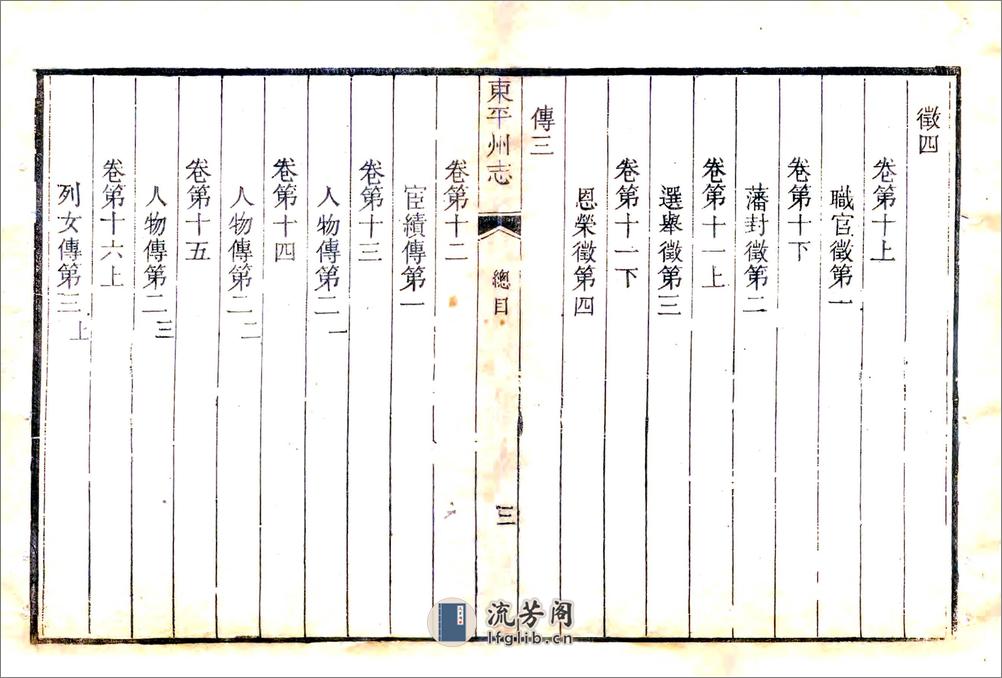 徵四
卷第十上
職官徵第一
卷第十下
藩封徵第二
卷第十一上
選舉徵第三
卷第十一下
恩榮徵第四
傳三
東平州志
總目
三
卷第十二
宦績傳第一
卷第十三
人物傳第二一
卷第十四
人物傳第二二
卷第十五
人物傳第二三
卷第十六上
列女傳第三上
流芳阁
lfglib.cn